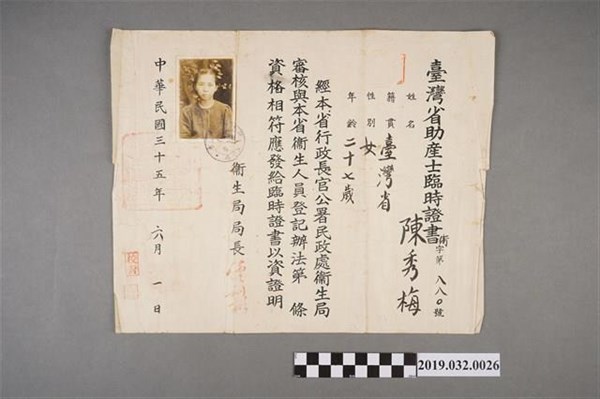 臺灣省助產士臨時證書
衛字第八八〇號
姓名 陳秀梅
籍貫 臺灣省
性別 女
年齡 二十七歲
經本省行政長官公署民政處衞生局
審核與本省衞生人員登記辦法第 條
資格相符應發給臨時證書以資證明
衞生局局長
中華民國三十五年 六月 一日
2019.032.0026